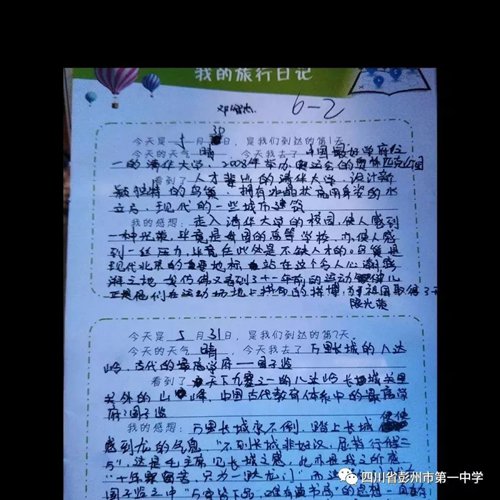 我的旅行日记
6-2
今天是 5 月 30 日，是我们到达的第1天
今天的天气 晴 今天我去了 中国最好学府之
一的清华大学 2008年举办奥运会的奥林匹克公园
看到了 人才辈出的清华大学，设计新
颖独特的鸟巢 拥有水晶状 的水
立方 现代的一些城市建筑
我的感想： 走入清华大学的校园，使人感到
一种光荣，毕竟是 国的高等学校，亦使人感
到一丝压力，毕竟在此处是不缺人才的。鸟巢是
现代北京的 地标 站在这个令人心潮澎
湃之地 我仿佛又看到了十一年前的运动健儿
他们在运动场地上 的拼搏，为祖国取得了
今天是 5 月 31 日，是我们到达的第2天，
今天的天气 晴 ，今天我去了 万里长城的八达
岭，古代的最高学府——国子监
看到了 天下九塞之一的八达岭长城 关里
关外的山峰，中国古代教育体系中的最高学
府：国子监
我的感想： 万里长城永不倒，踏上长城 便使
感到龙的气息 “不到长城非好汉，屈指行程二
万”，这是毛主席见长城之意，此亦是我之所感
“十年寒窗苦，只为一跃龙门”，而
国子监之中 “ 下品，唯有读书高”
四川省彭州市第一中学